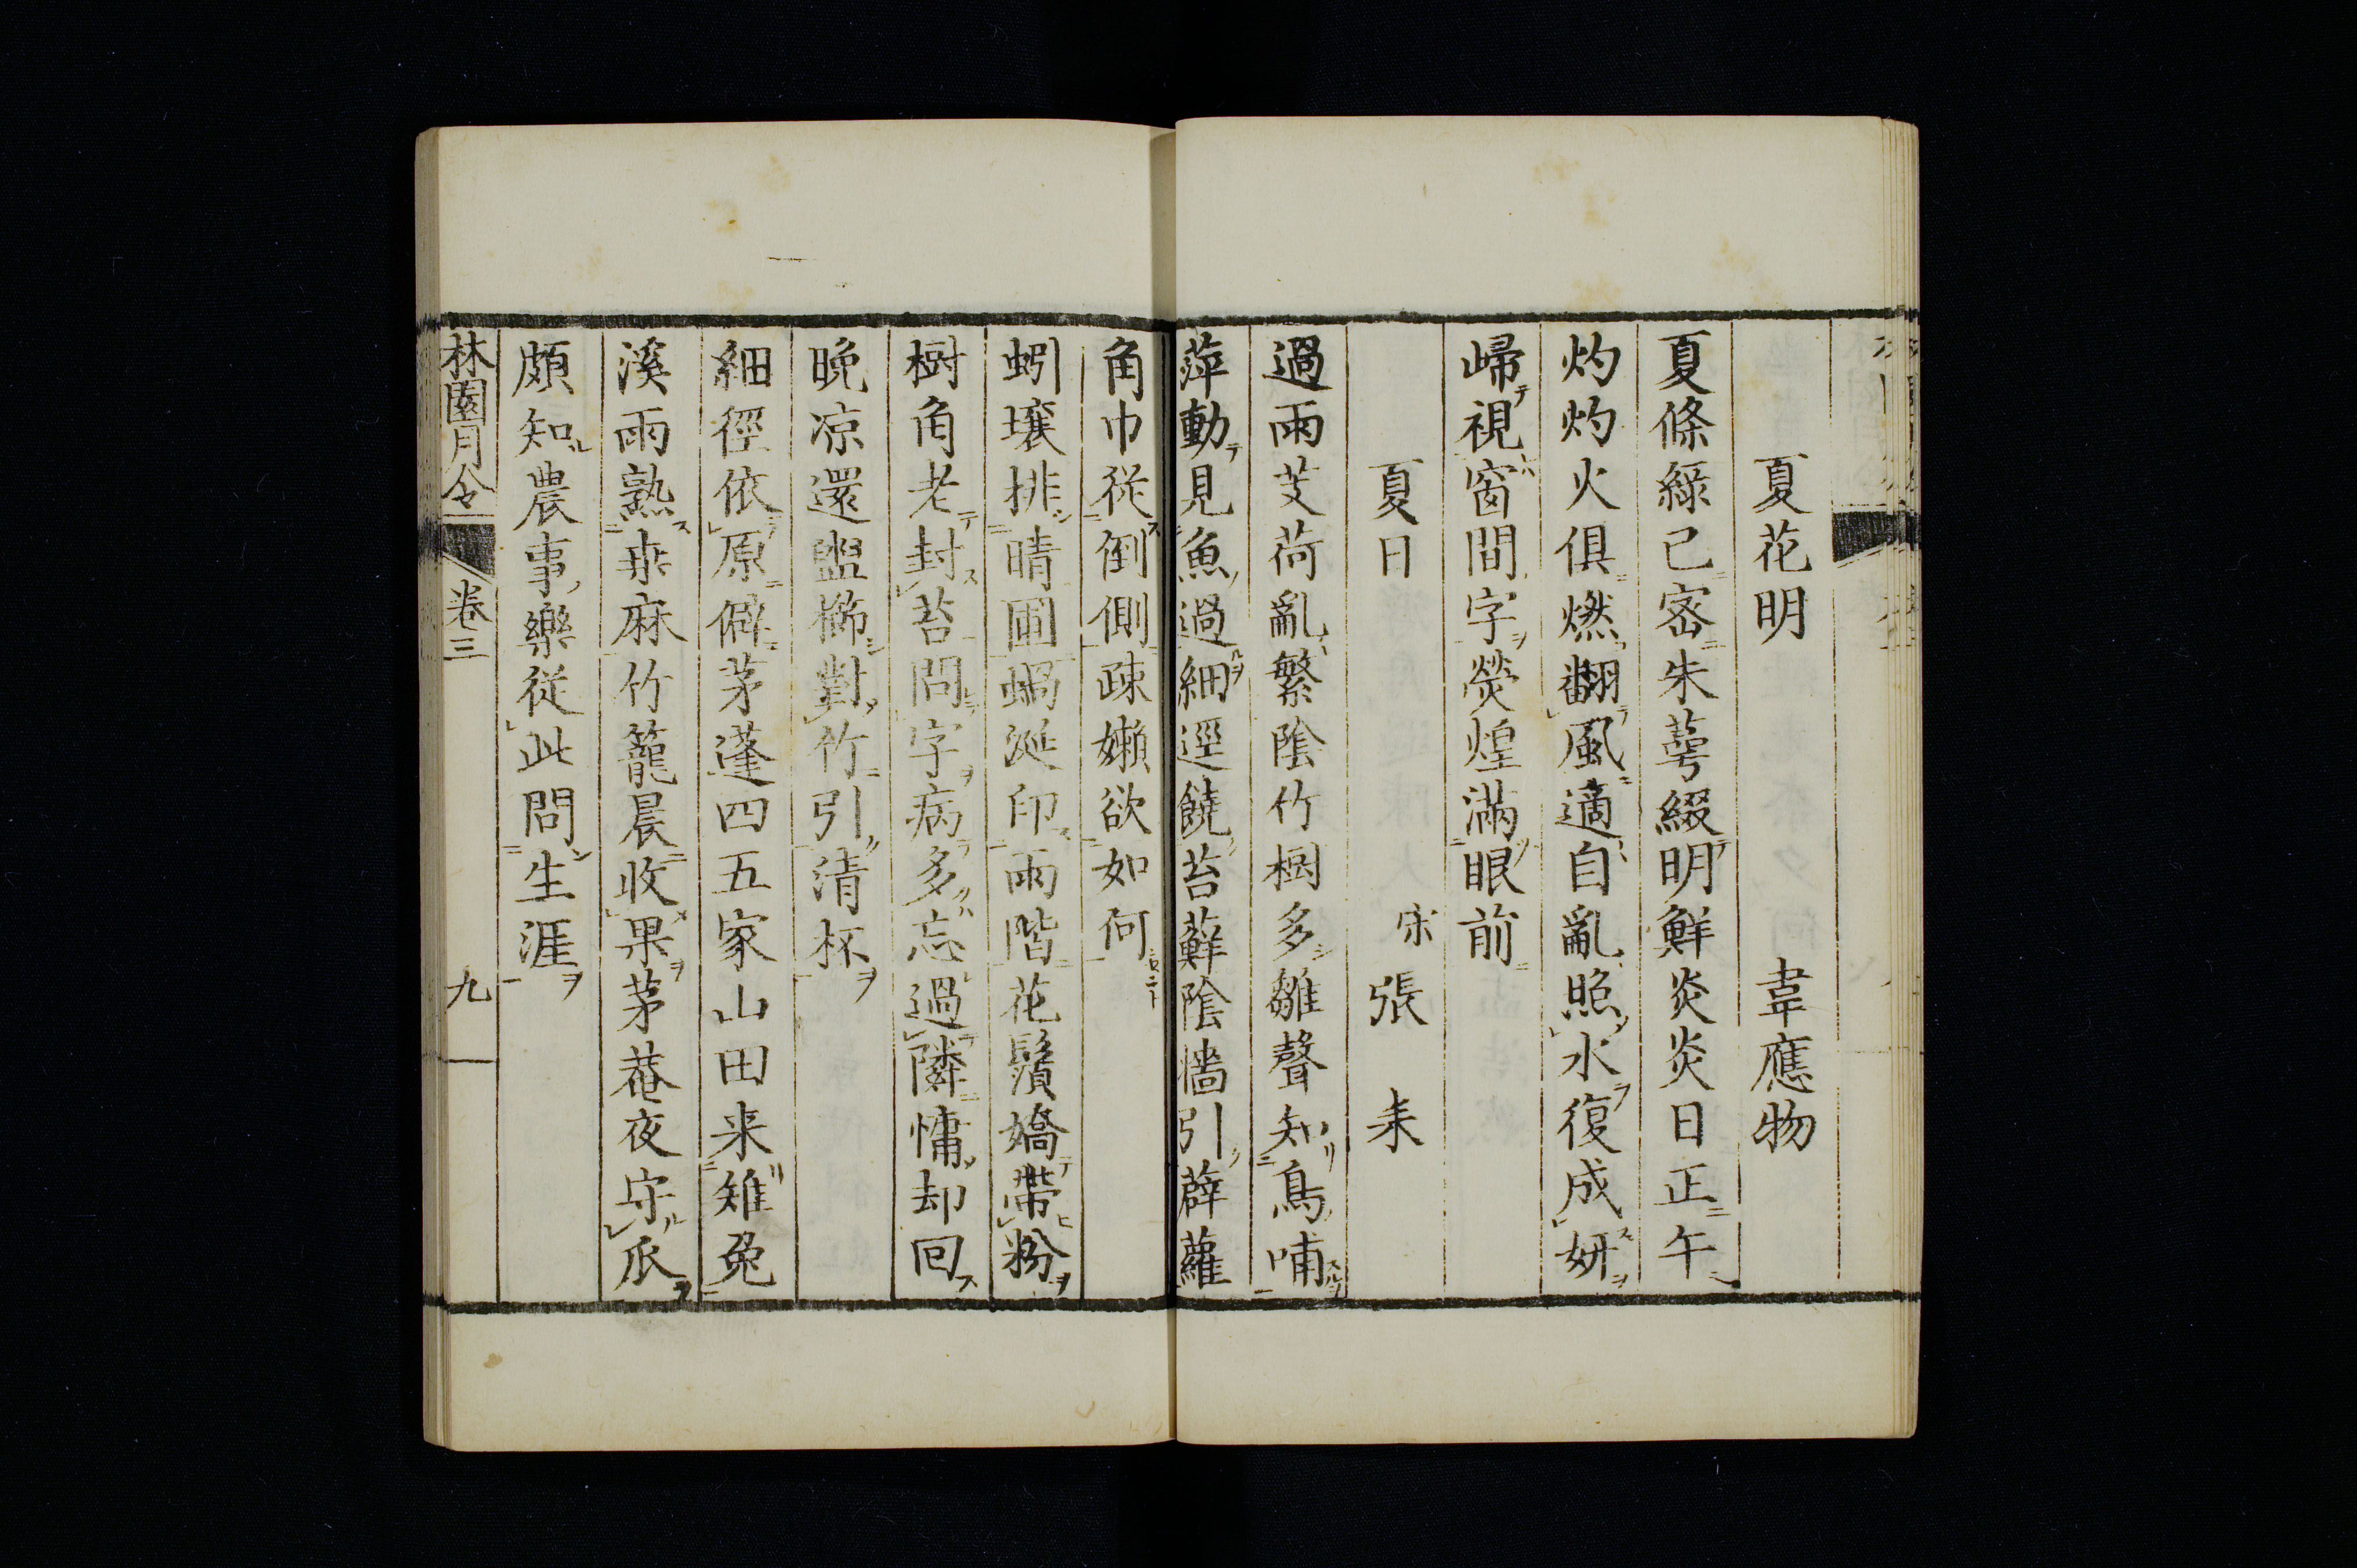 夏花明　韋應物
夏條綠已密朱萼綴明鮮炎炎日正午
灼灼火俱燃翻風適自亂照水復成妍
歸視窗間字熒煌滿眼前
夏日　宋張耒
過雨芰荷亂繁陰竹樹多雛聲知鳥哺
萍動見魚過細逕饒苔蘚陰墻引薜蘿
角巾從倒側疎嬾欲如何
蚓壤排晴圃蝸涎印雨階花鬚嬌帶粉
樹角老封苔問字病多忘過隣慵却回
晚凉還盥櫛對竹引清杯
細徑依原僻茅蓬四五家山田来雉兔
溪雨熟桒麻竹籠晨收果茅菴夜守瓜
頗知農事樂從此問生涯
林園月令　卷三　九